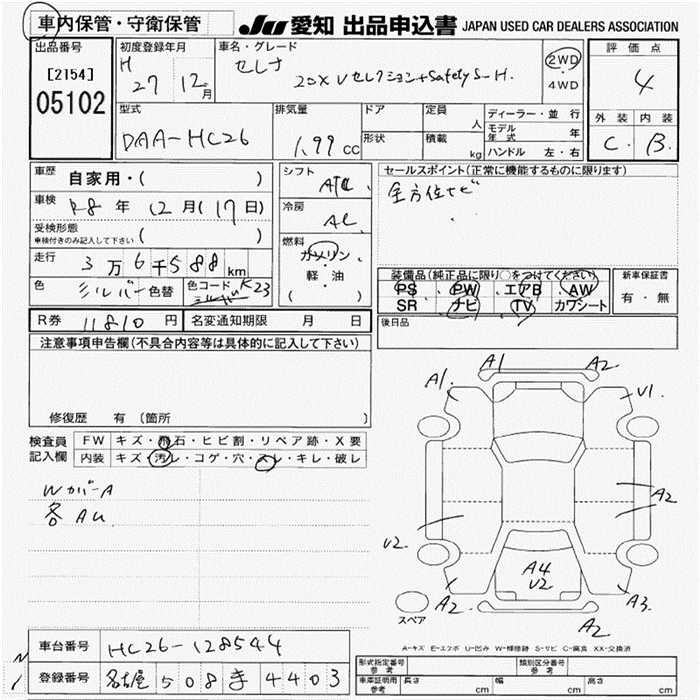 車内保管・守衛保管 JU 愛知 出品申込書 JAPAN USED CAR DEALERS ASSOCIATION
出品番号 [2154] 05102
初度登録年月 H 27 12月
車名・グレード セレナ 20X Vセレクション+Safety S-H.
2WD・4WD
評価点 4
外装 内装
C. B.
型式 DAA-HC26
排気量 1.99 cc
ドア 形状
定員 人
積載 kg
ディーラー・並行
モデル年式 年
ハンドル 左・右
車歴 自家用・( )
車検 R8 年 12月(17日)
受検形態
車検付きのみ記入して下さい ( )
走行 3万6千588km
色 シルバー 色替
色コード K23
シフト
冷房 AC
燃料 ガソリン
軽・油
( )
セールスポイント(正常に機能するものに限ります)
全方位ナビ
装備品(純正品に限り○をつけてください)
PS PW エアB AW
SR ナビ TV カワシート
新車保証書
有・無
後日品
R券 11810 円
名変通知期限 月 日
注意事項申告欄(不具合内容等は具体的に記入して下さい)
修復歴 有 (箇所 )
検査員記入欄
FW キズ・飛石・ヒビ割・リペア跡・X要
内装 キズ・汚レ・コゲ・穴・スレ・キレ・破レ
WカバーA
各AU
A1 A2
A1. V1.
A2
U2.
A4
U2
A2. A2 A3.
スペア
A-キズ E-エクボ U-凹み W-補修跡 S-サビ C-腐食 XX-交換済
車台番号 HC26-128544
登録番号 名古屋 508 ま 4403
N
1
形式指定番号 参考
類別区分番号 参考
車庫証明用 参考 長さ cm 幅 cm 高さ cm